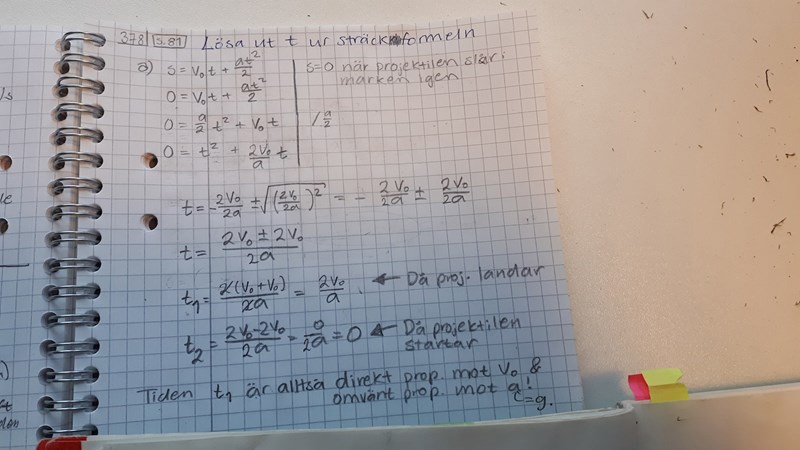 378 s.81 Lösa ut t ur sträckformeln
a) s = v₀t + at²/2 s=0 när projektilen slår i
0 = v₀t + at²/2 marken igen
0 = a/2 t² + v₀t / a/2
0 = t² + 2v₀/a t
t = -2v₀/2a ± √((2v₀/2a)²) = - 2v₀/2a ± 2v₀/2a
t = 2v₀ ± 2v₀/2a
t₁ = 2(v₀+v₀)/2a = 2v₀/a . ← Då proj. landar
t₂ = 2v₀-2v₀/2a = 0/2a = 0 ← Då projektilen
startar
Tiden t₁ är alltså direkt prop. mot v₀ &
omvänt prop. mot a!
=g.